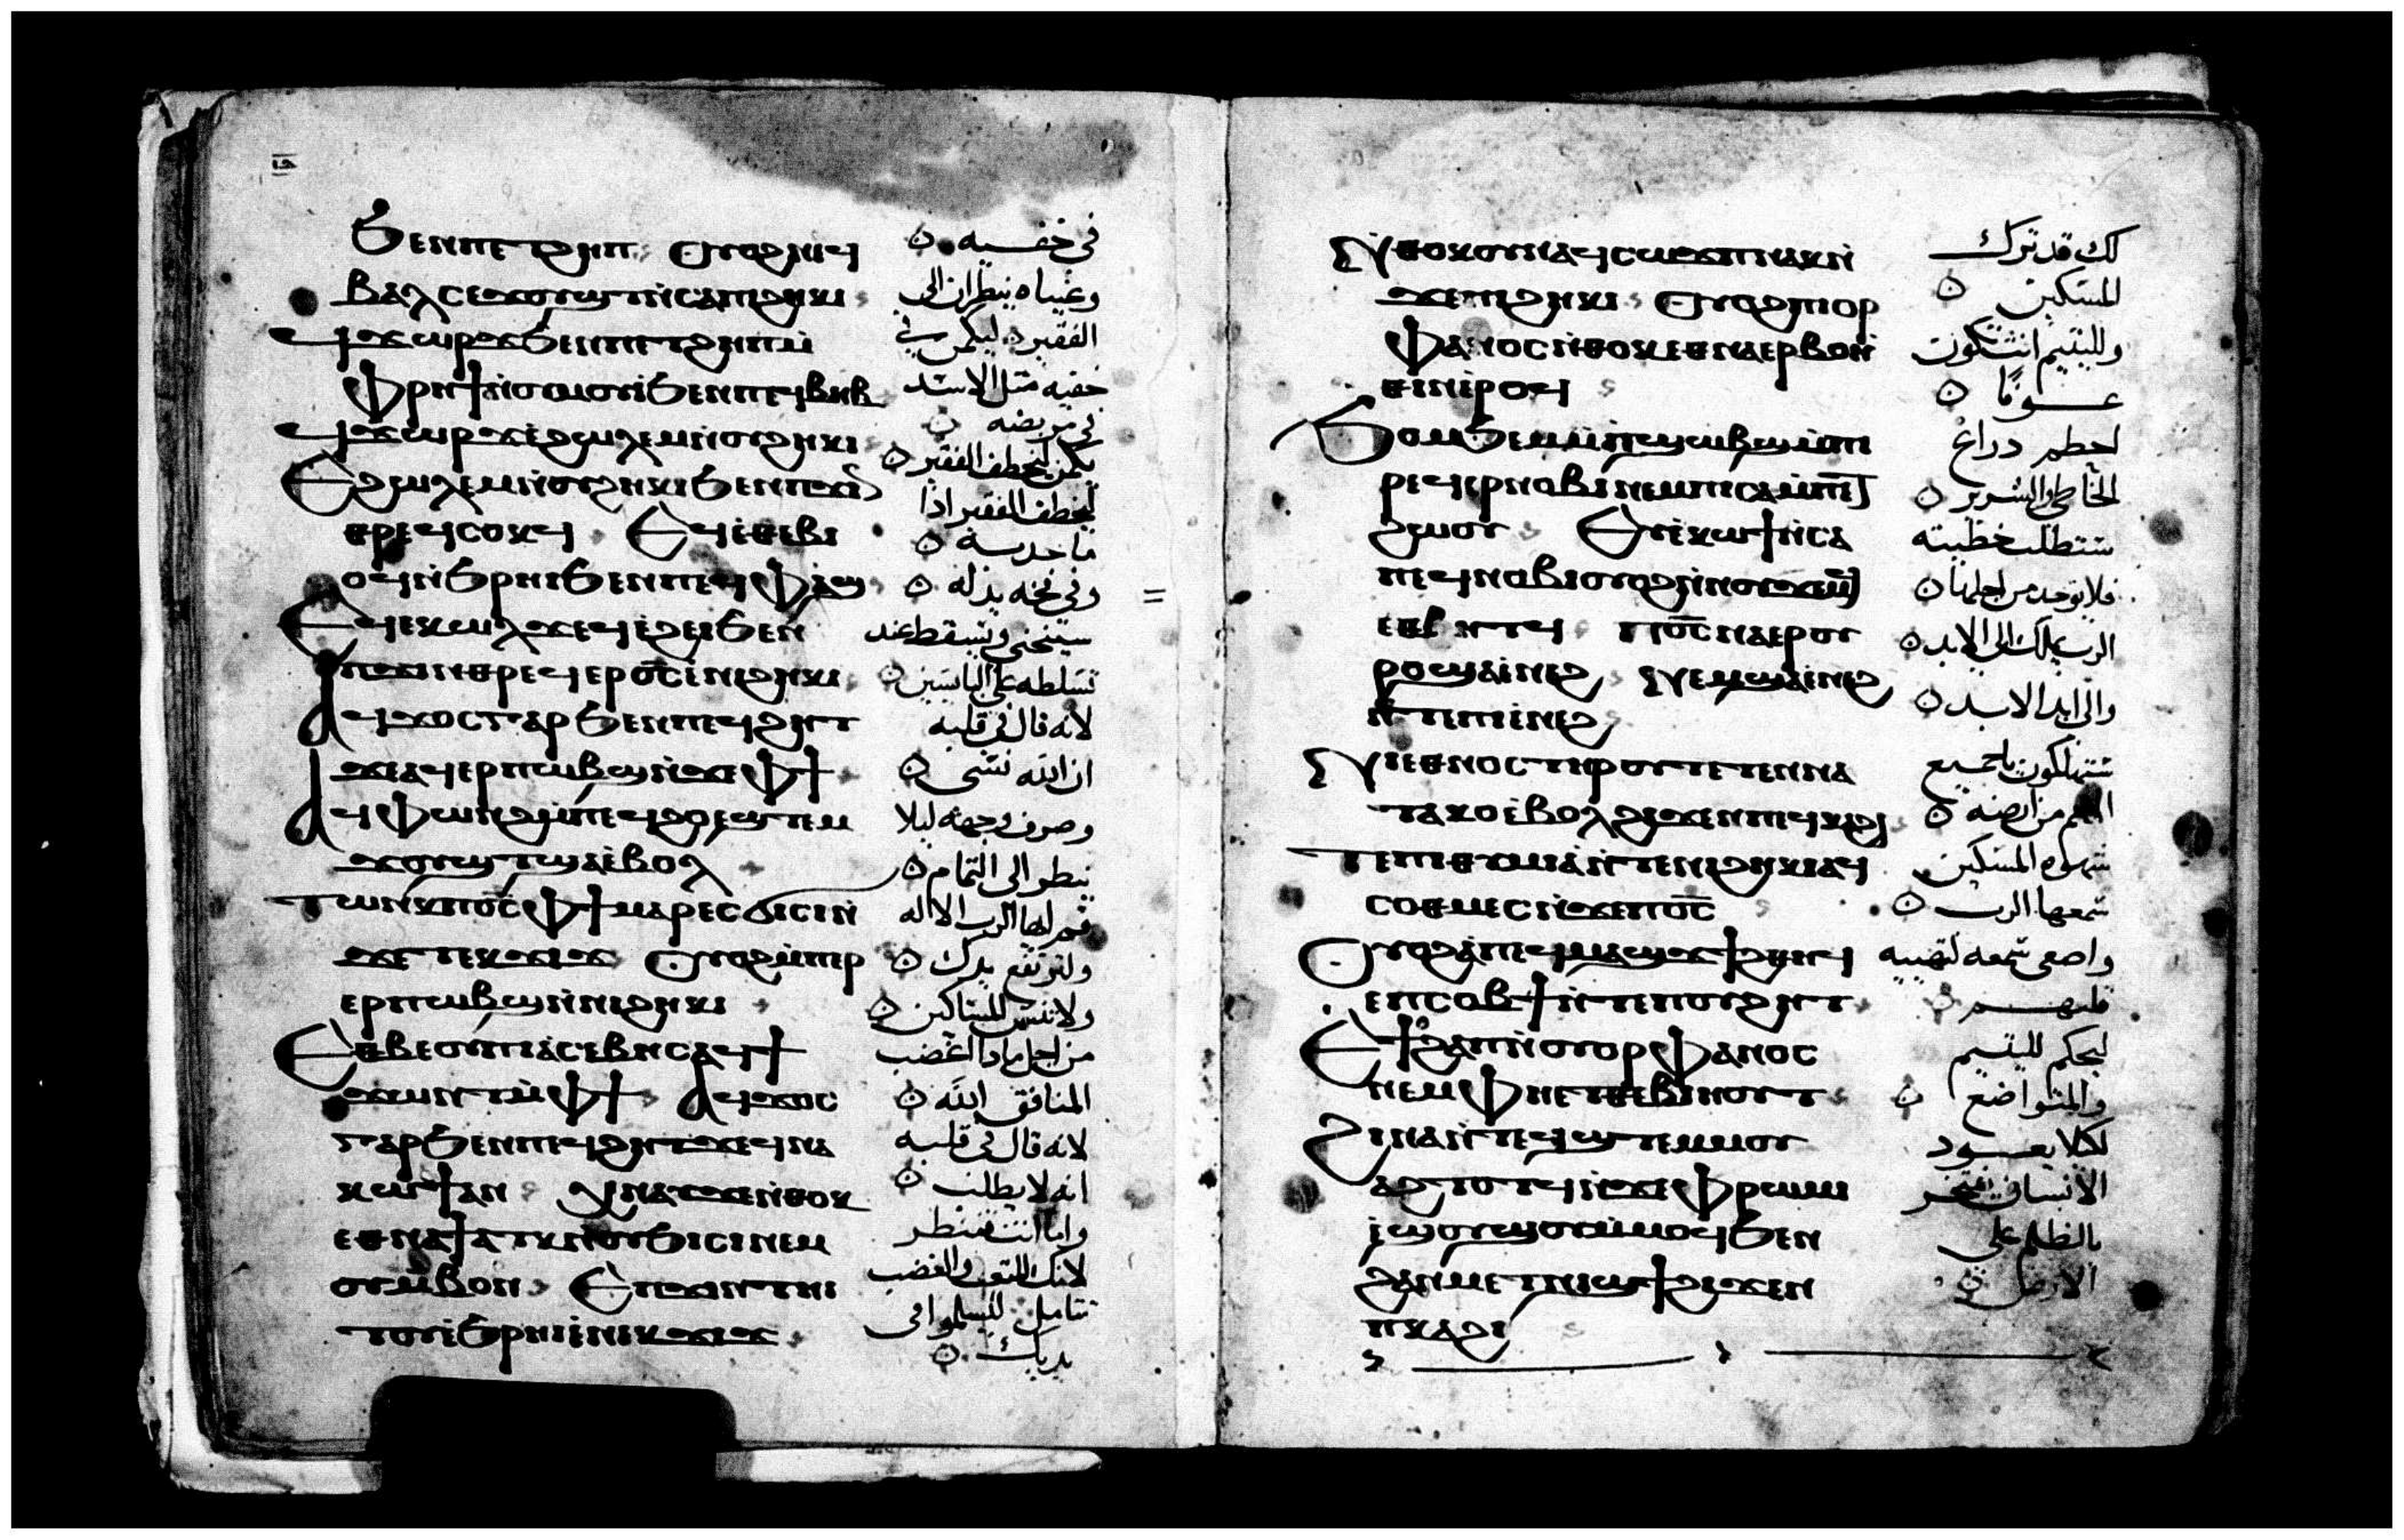 ⲓⲑ
ϧⲉⲛ ⲡⲉⲧϩⲏⲡ ⲟⲩⲟϩ ⲛⲉϥ
ⲃⲁⲗ ⲥⲉϫⲟⲩϣⲧ ⲛⲥⲁ ⲡⲓϩⲏⲕⲓ
ϥϫⲱⲣϫ ϧⲉⲛ ⲡⲉⲧϩⲏⲡ ⲙ̀
ⲫⲣⲏϯ ⲛⲟⲩⲙⲟⲩⲓ ϧⲉⲛ ⲡⲉϥⲃⲏⲃ
ϥϫⲱⲣϫ ⲉ̀ϩⲱⲗⲉⲙ ⲛ̀ⲟⲩϩⲏⲕⲓ
Ⲉϩⲱⲗⲉⲙ ⲛ̀ⲟⲩϩⲏⲕⲓ ϧⲉⲛ ⲡϫⲓⲛ
ⲑⲣⲉϥⲥⲟⲕϥ Ⲉϥⲉ̀ⲑⲉⲃⲓ
ⲟϥ ⲛ̀ϧⲣⲏⲓ ϧⲉⲛ ⲡⲉϥⲫⲁϣ
Ⲉϥⲉⲕⲱⲗϫ ⲉϥⲉ̀ϩⲉⲓ ϧⲉⲛ
ⲡϫⲓⲛⲑⲣⲉϥⲉⲣϭⲥ ⲉ̀ⲛⲓϩⲏⲕⲓ
Ⲁϥϫⲟⲥ ⲅⲁⲣ ϧⲉⲛ ⲡⲉϥϩⲏⲧ
ϫⲉ ⲁϥⲉⲣⲡⲱⲃϣ ⲛ̀ϫⲉ ⲫϯ
Ⲁϥⲫⲱⲛϩ ⲙ̀ⲡⲉϥϩⲟ ⲉ̀ϣⲧⲉⲙ
ϫⲟⲩϣⲧ ϣⲁⲉ̀ⲃⲟⲗ
Ⲧⲱⲛⲕ ⲡϭⲥ ⲫϯ ⲙⲁⲣⲉⲥϭⲓⲥⲓ ⲛ̀
ϫⲉ ⲧⲉⲕϫⲓϫ ⲟⲩⲟϩ ⲙ̀ⲡⲣ
ⲉⲣⲡⲱⲃϣ ⲛ̀ⲛⲓϩⲏⲕⲓ
Ⲉⲑⲃⲉ ⲟⲩ ⲡⲓⲁⲥⲉⲃⲏⲥ ⲁϥϯ
ϫⲱⲛⲧ ⲙ̀ⲫϯ Ⲁϥϫⲟⲥ
ⲅⲁⲣ ϧⲉⲛ ⲡⲉϥϩⲏⲧ ϫⲉ ϥⲛⲁ
ⲕⲱϯ ⲁⲛ Ⲭⲛⲁⲩ ϫⲉ ⲛ̀ⲑⲟⲕ
ⲉⲑⲛⲁϯⲁⲧⲕ ⲛⲟⲩϧⲓⲥⲓ ⲛⲉⲙ
ⲟⲩⲙ̀ⲃⲟⲛ Ⲉⲡϫⲓⲛⲧⲏⲓ
ⲧⲟⲩ ⲛ̀ϧⲣⲏⲓ ⲉ̀ⲛⲉⲕϫⲓϫ
فى خفيه
وعيناه ينظران الى
الفقير ليكمن فى
خفيه مثل الاسد
فى مربضه
يكمن ليخطف الفقير
ليخطف الفقير اذا
ما جذبه
وفى فخه يذله
سينحنى ويسقط عند
تسلطه على اليابسين
لانه قال فى قلبه
ان الله نسى
وصرف وجهه ليلا
ينظر الى التمام
قم ايها الرب الاله
ولترتفع يدك
ولا تنس المساكين
من اجل ماذا اغضب
المنافق الله
لانه قال فى قلبه
انه لا يطلب
واما انت فتنظر
لانك للتعب والغضب
تتامل ليسلموا فى
يديك
Ⲛ̀ⲑⲟⲕ ⲟⲩⲛ ⲁϥⲥⲱϫⲡ ⲛⲁⲕ ⲛ̀
ϫⲉ ⲡⲓϩⲏⲕⲓ ⲟⲩⲟϩ ⲡⲓⲟⲣ
ⲫⲁⲛⲟⲥ ⲛ̀ⲑⲟⲕ ⲉⲑⲛⲁⲉⲣⲃⲟⲏ̀
ⲑⲓⲛ ⲉ̀ⲣⲟϥ
Ϧⲟⲙϧⲉⲙ ⲙ̀ⲡϣⲱⲃϣ ⲙ̀ⲡⲓ
ⲣⲉϥⲉⲣⲛⲟⲃⲓ ⲛⲉⲙ ⲡⲓⲥⲁⲙⲡⲉⲧ
ϩⲱⲟⲩ Ⲉⲩⲉ̀ⲕⲱϯ ⲛ̀ⲥⲁ
ⲡⲉϥⲛⲟⲃⲓ ⲟⲩⲟϩ ⲛ̀ⲛⲟⲩϫⲉⲙϥ
ⲉⲑⲃⲏⲧϥ ⲡϭⲥ ⲛⲁⲉⲣⲟⲩ
ⲣⲟ ϣⲁⲉ̀ⲛⲉϩ ⲛⲉⲙ ϣⲁⲉ̀ⲛⲉϩ
ⲛ̀ⲧⲉ ⲡⲓⲉ̀ⲛⲉϩ
Ⲛⲓⲉⲑⲛⲟⲥ ⲧⲏⲣⲟⲩ ⲧⲉⲧⲉⲛⲛⲁ
ⲧⲁⲕⲟ ⲉ̀ⲃⲟⲗ ϩⲓϫⲉⲛ ⲡⲉϥⲕⲁϩⲓ
Ⲧⲉⲡⲓⲑⲩⲙⲓⲁ ⲛ̀ⲧⲉ ⲛⲓϩⲏⲕⲓ ⲁϥ
ⲥⲟⲑⲙⲉⲥ ⲛ̀ϫⲉ ⲡϭⲥ
Ⲟⲩⲟϩ ⲁ̀ ⲡⲉϥⲙⲁϣϫ ϯϩⲑⲏϥ
ⲉ̀ⲡⲥⲟⲃϯ ⲛ̀ⲧⲉ ⲡⲟⲩϩⲏⲧ
Ⲉϯϩⲁⲡ ⲉ̀ⲡⲓⲟⲣⲫⲁⲛⲟⲥ
ⲛⲉⲙ ⲫⲏ ⲉⲧⲑⲉⲃⲓⲏⲟⲩⲧ
Ϩⲓⲛⲁ ⲛ̀ⲧⲉϥϣⲧⲉⲙⲟⲩ
ⲁϩⲧⲟⲧϥ ⲛ̀ϫⲉ ⲫⲣⲱⲙⲓ
ⲉ̀ϣⲟⲩϣⲟⲩ ⲙ̀ⲙⲟϥ ϧⲉⲛ
ϩⲁⲛⲙⲉⲧⲛⲓϣϯ ϩⲓϫⲉⲛ
ⲡⲕⲁϩⲓ
لك قد ترك
المسكين
ولليتيم انت تكون
عونًا
احطم دراع
الخاطى والشرير
ستطلب خطيته
فلا توجد من اجلها
الرب يملك الى الابد
والى ابد الابد
ستهلكون يا جميع
الامم من ارضه
شهوة المسكين
سمعها الرب
واصغى سمعه لتهيية
قلبهم
ليحكم لليتيم
والمتواضع
لكلا يعود
الانسان يفتخر
بالعظم على
الارض